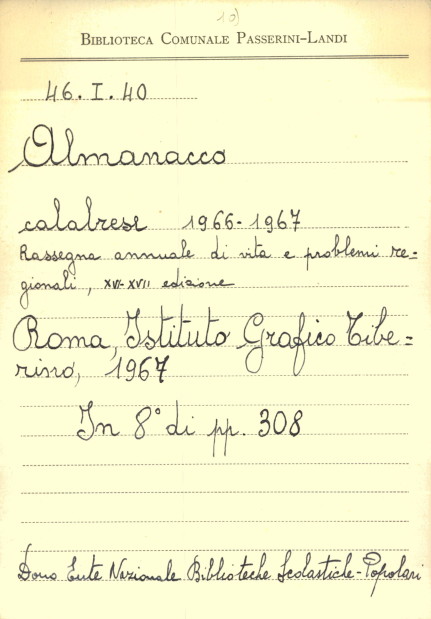 10)
BIBLIOTECA COMUNALE PASSERINI-LANDI
46.I.40
Almanacco
calabrese 1966-1967
Rassegna annuale di vita e problemi re-
gionali, XVI-XVII edizione
Roma, Istituto Grafico Tibe=
rino, 1967
In 8° di pp. 308
Dono Ente Nazionale Biblioteche Scolastiche-Popolari